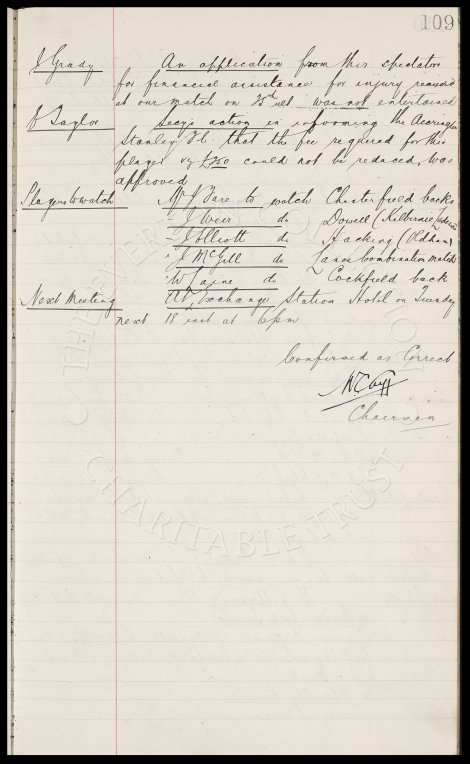 109
J Grady An application from this spectator
for financial assistance for injury received
at our match on 23rd ult was not entertained
J Taylor Secys action in informing the Accrington
Stanley F.C. that the fee required for this
player of £300 could not be reduced, was
approved
Players to watch Mr J Bare to watch Chesterfield backs
" J Weir do Dowell (Kilbirnie
" J Elliott do Hacking (Oldham)
" J McGill do Lancs Combination match
" W do Cockfield back
Next Meeting At Exchange Station Hotel on Tuesday
next 18 inst at 6pm
Confirmed as Correct
W. C. Cuff
Chairman
© THE EVERTON COLLECTION
CHARITABLE TRUST